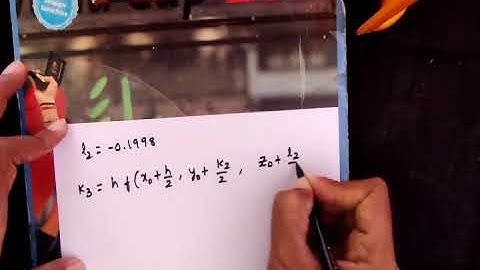 l₂ = -0.1998
K₃ = h f (x₀ + h/2 , y₀ + K₂/2 , z₀ + l₂/